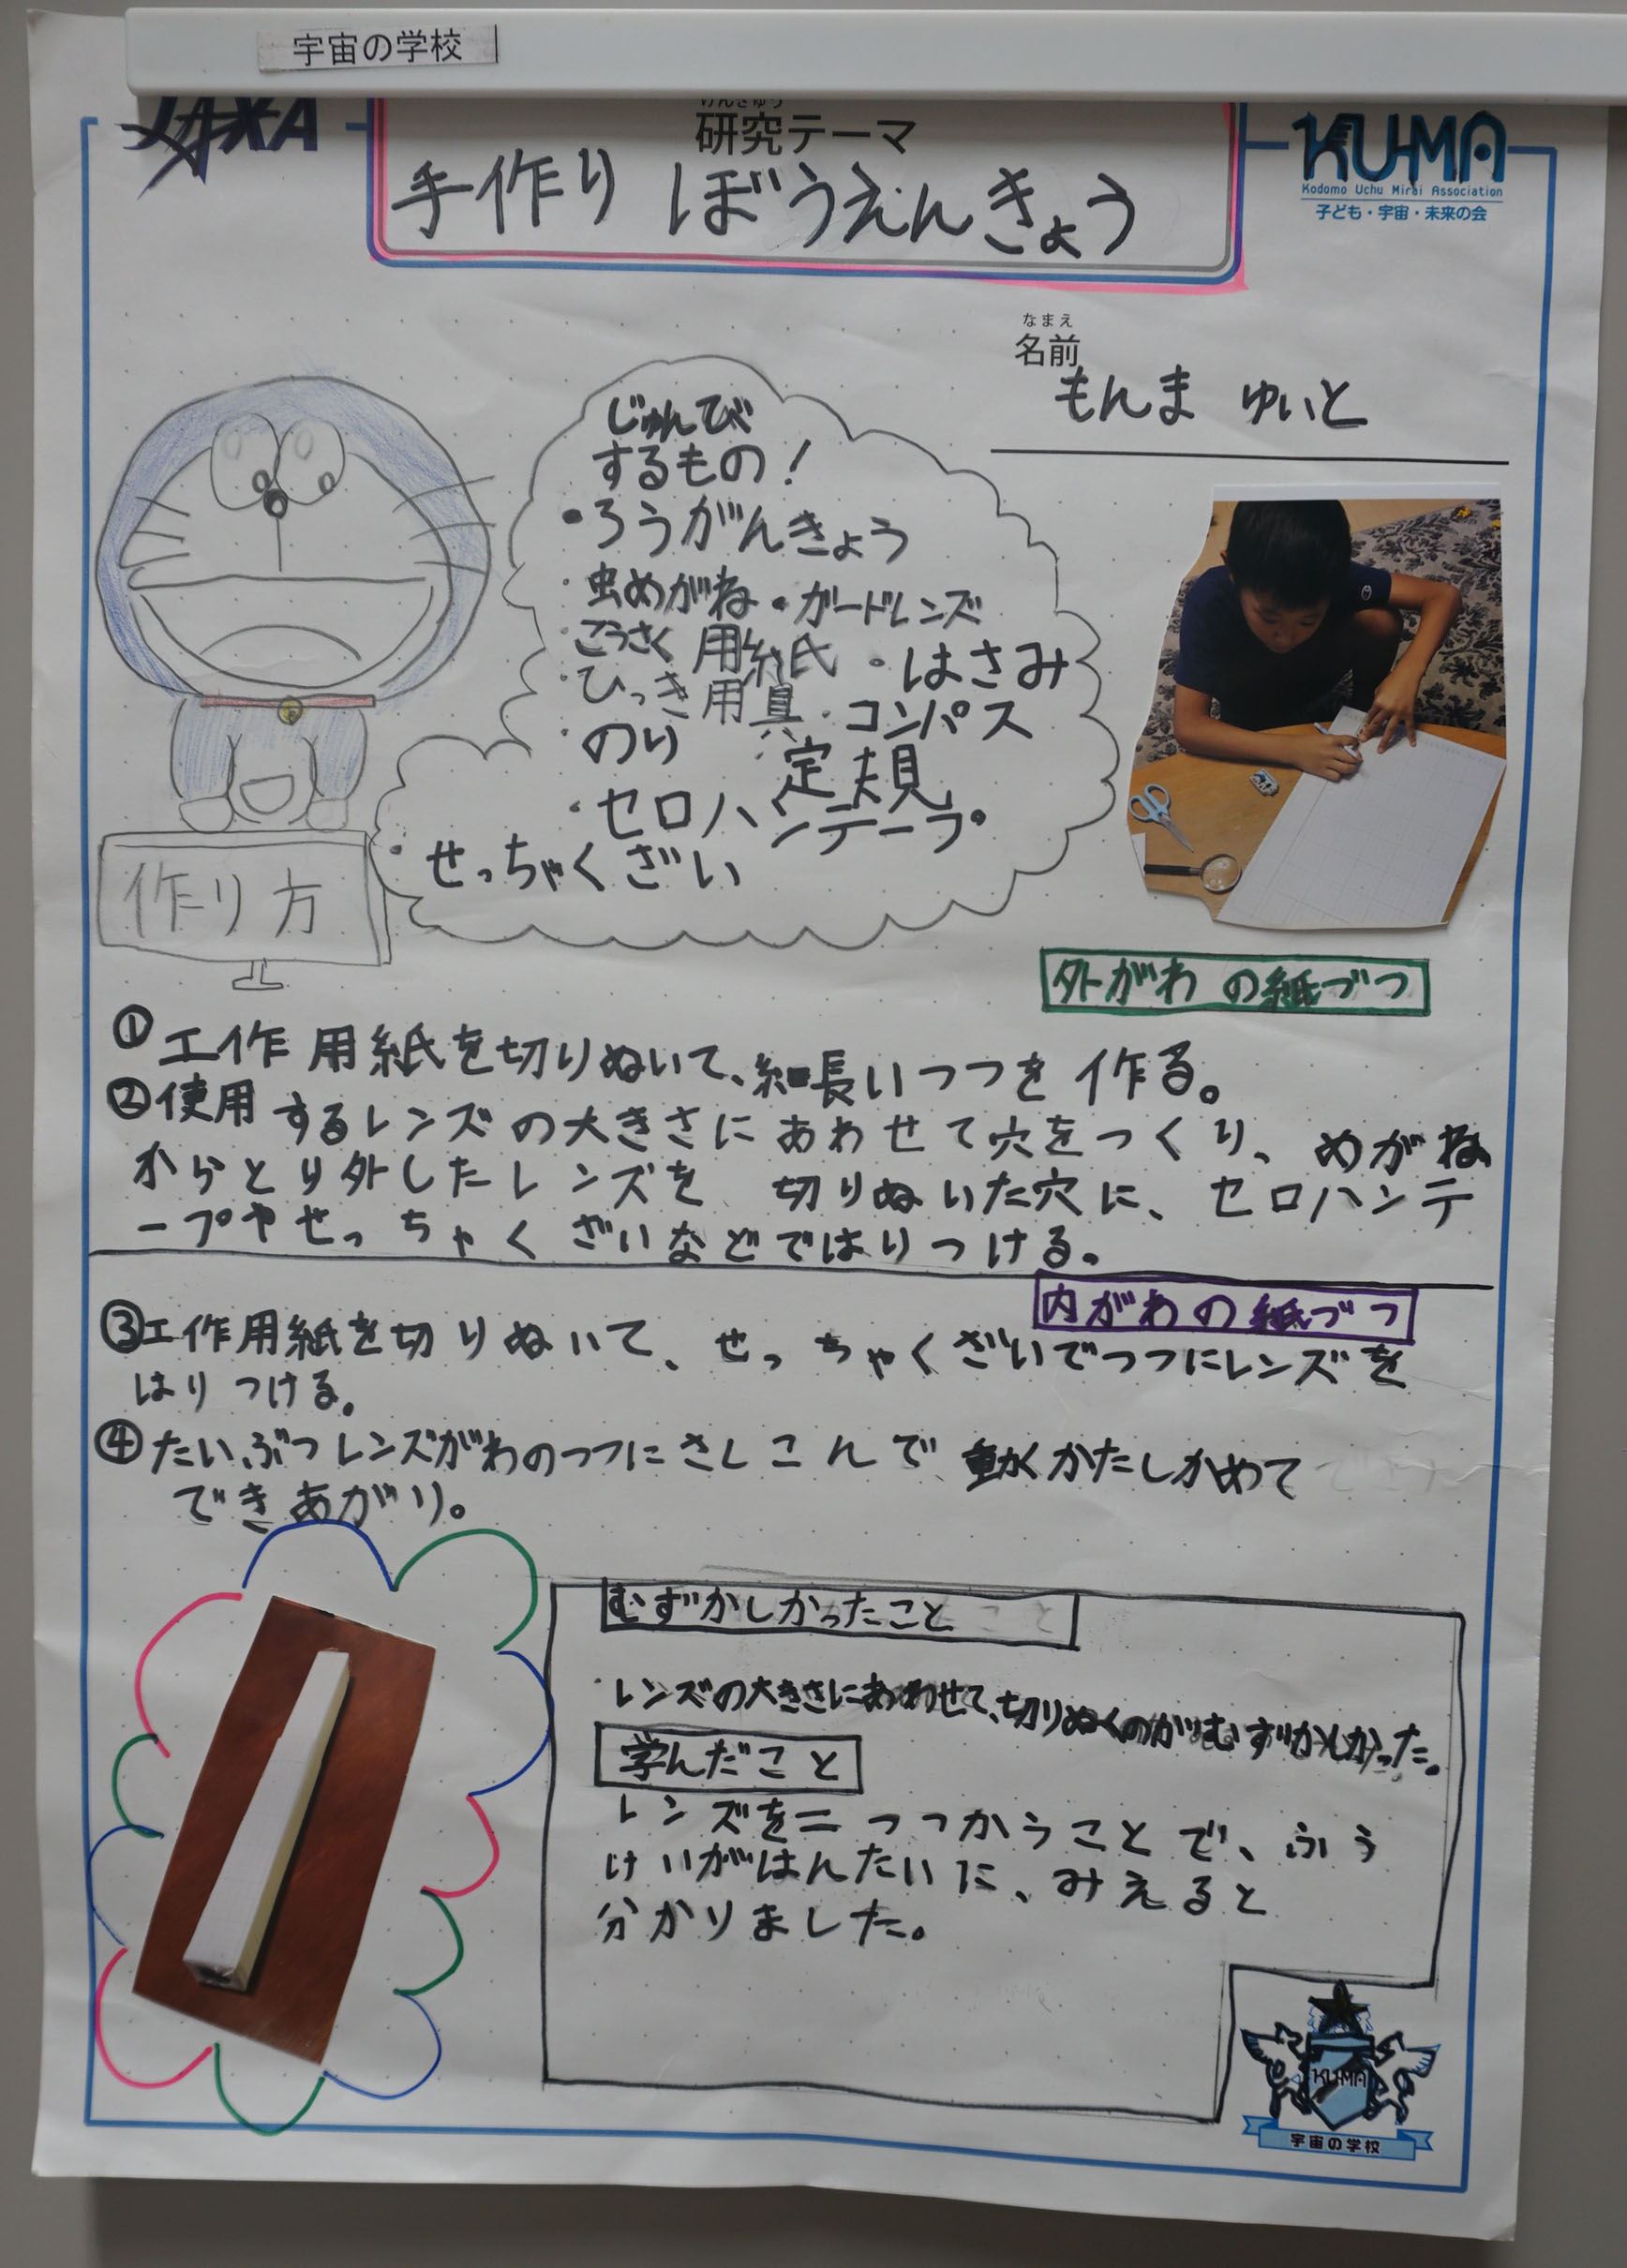 宇宙の学校
JAXA
けんきゅう
研究テーマ
手作り ぼうえんきょう
KUMA
Kodomo Uchu Mirai Association
子ども・宇宙・未来の会
なまえ
名前
もんま ゆいと
じゅんび
するもの!
・ろうがんきょう
・虫めがね ・ガードレンズ
・こうさく用紙 ・はさみ
・ひっき用具・コンパス
・のり ・定規
・セロハンテープ
・せっちゃくざい
作り方
外がわの紙づつ
①工作用紙を切りぬいて、細長いつつを作る。
②使用するレンズの大きさにあわせて穴をつくり、めがね
からとり外したレンズを 切りぬいた穴に、セロハンテ
ープやせっちゃくざいなどではりつける。
内がわの紙づつ
③工作用紙を切りぬいて、せっちゃくざいでつつにレンズを
はりつける。
④たいぶつレンズがわのつつにさしこんで動くかたしかめて
できあがり。
むずかしかったこと
・レンズの大きさにあわせて、切りぬくのがむずかしかった。
学んだこと
レンズを二つつかうことで、ふう
けいがはんたいに、みえると
分かりました。
KUMA
宇宙の学校